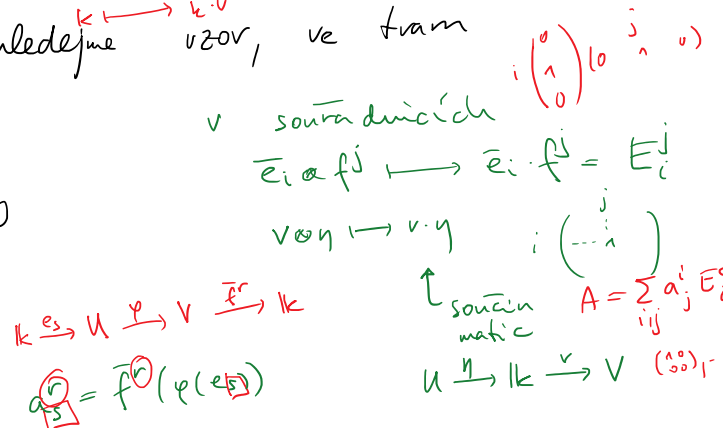 k ⟼ k·v
vzor, ve tvam
i (0 1 0) (0 j 1 0)
v souřadnicích
e̅ᵢ ⊗ fʲ ⟼ e̅ᵢ · fʲ = Eᵢʲ
v⊗η ⟼ v·η
i ( ···· 1 ) j
součin
matic
A = ∑ᵢ,ⱼ aⱼⁱ Eᵢ
𝕜 →(eₛ) U →(φ) V →(f̅ʳ) 𝕜
aₛʳ = f̅ʳ(φ(eₛ))
U →(η) 𝕜 →(v) V
(1 0 0 0),